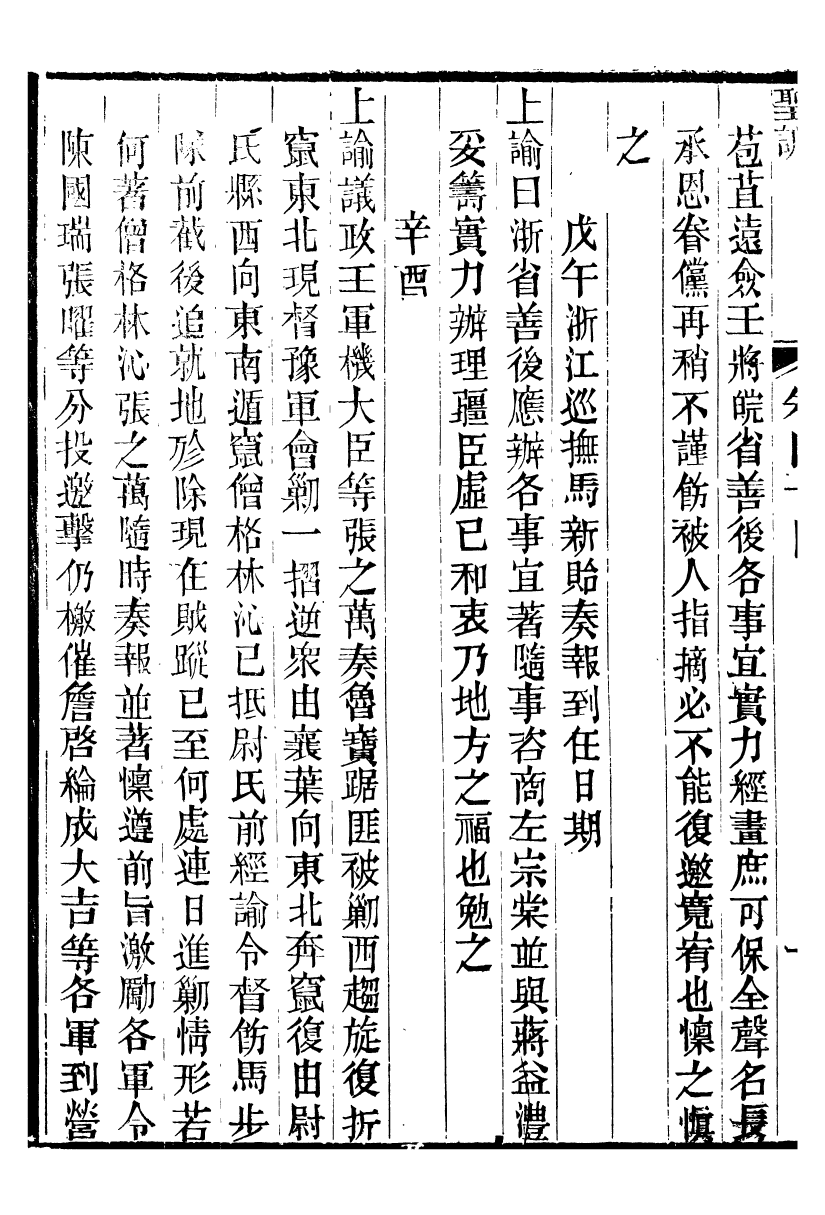 聖訓
苞苴遠僉壬將皖省善後各事宜實力經畫庶可保全聲名長
承恩眷儻再稍不謹飭被人指摘必不能復邀寬宥也懍之愼
之
戊午浙江巡撫馬新貽奏報到任日期
上諭曰浙省善後應辦各事宜著隨事咨商左宗棠並與蔣益澧
妥籌實力辦理疆臣虛已和衷乃地方之福也勉之
辛酉
上諭議政王軍機大臣等張之萬奏魯寶踞匪被勦西趨旋復折
竄東北現督豫軍會勦一摺逆衆由襄葉向東北奔竄復由尉
氏縣西向東南遁竄僧格林沁已抵尉氏前經諭令督飭馬步
隊前截後追就地殄除現在賊蹤已至何處連日進勦情形若
何著僧格林沁張之萬隨時奏報並著懍遵前旨激勵各軍令
陳國瑞張曜等分投邀擊仍檄催詹啓綸成大吉等各軍到營